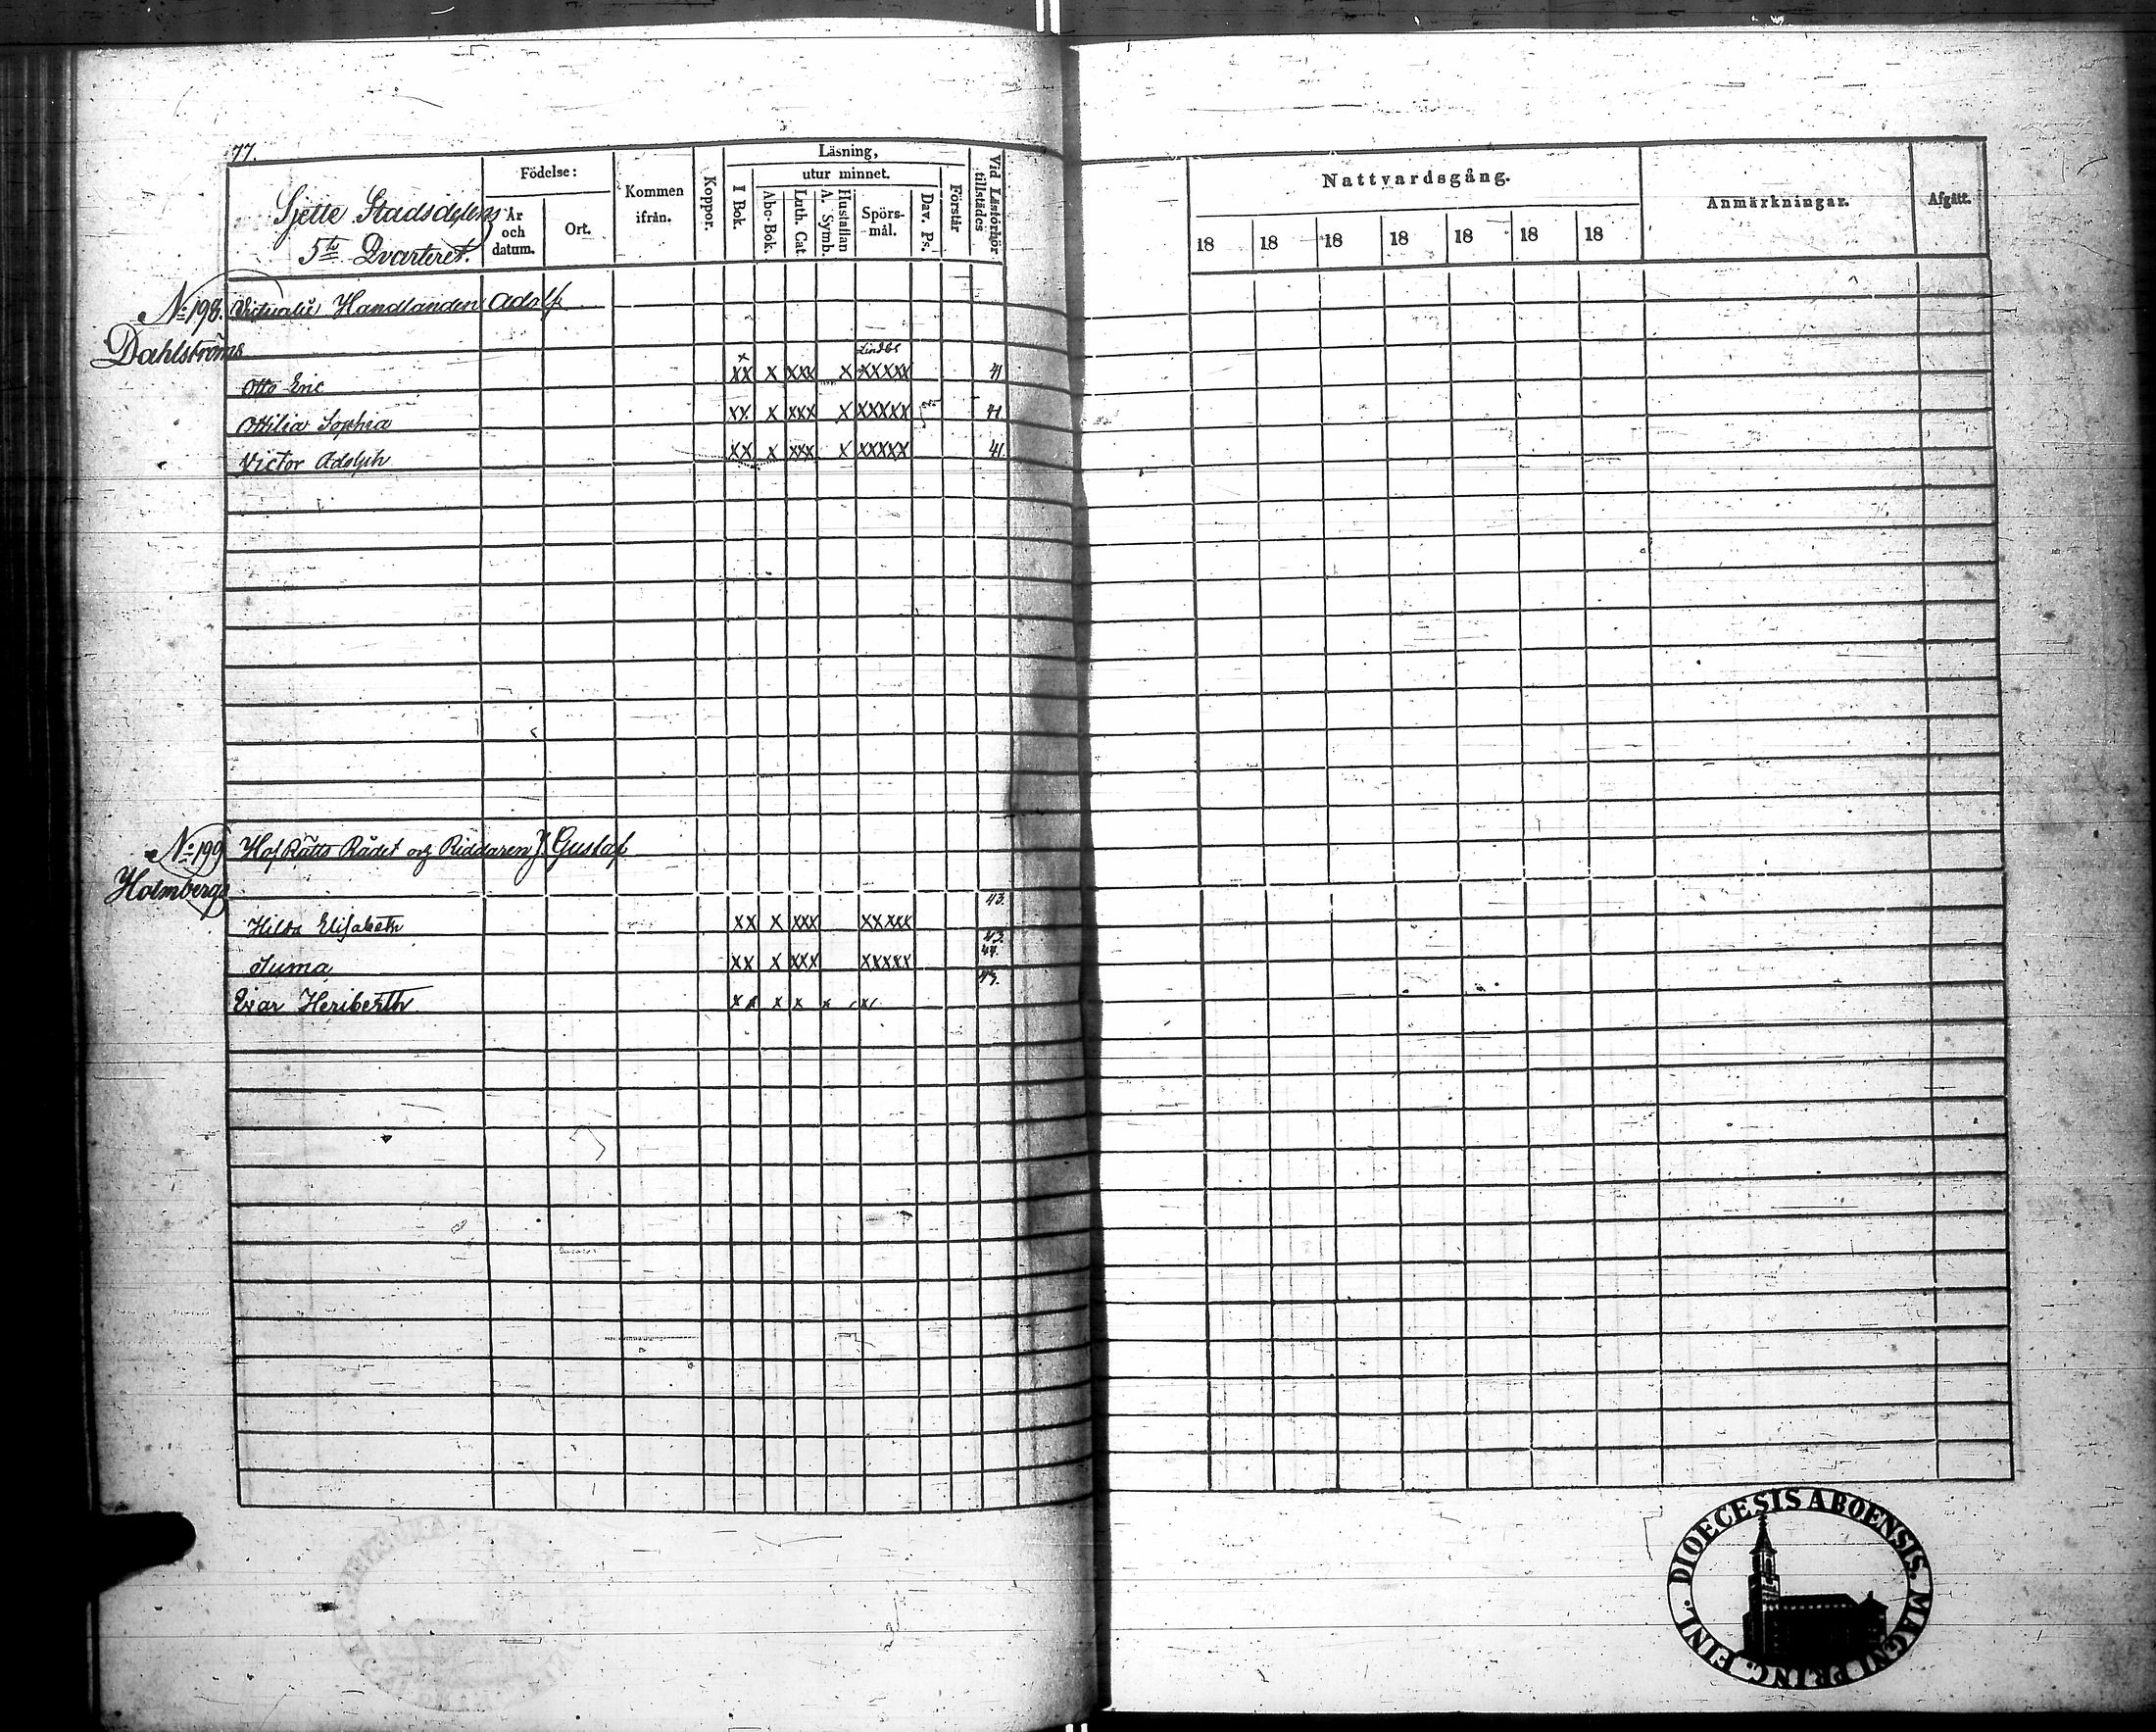 77.
Sjette Stadsdelens
5te Qvarteret.
Födelse:
År och datum.
Ort.
Kommen ifrån.
Koppor.
Läsning,
utur minnet.
I Bok.
Abc-Bok.
Luth. Cat.
A. Symb.
Hustaflan
Spörs-mål.
Dav. Ps.
Förstår
Vid Läsförhör tillstädes
Nattvardsgång.
18 18 18 18 18 18 18
Anmärkningar.
Afgått.
No 198. Victualie Handlanden Adolf
Dahlströms
x Lindbl
Otto Eric xx x xxx x xxxxx 41
Ottilia Sophia xx x xxx x xxxxx 41.
Victor Adolph xx x xxx x xxxxx 41.
No 199 HofRätts Rådet och Riddaren J. Gustaf
Holmbergs
43.
Hilda Elisabeth xx x xxx xxxxx
43.
44.
xx x xxx xxxxx
43.
Evar Heriberth xx x x x x
DIOECESIS ABOENSIS. MAGNI PRINC. FINL.